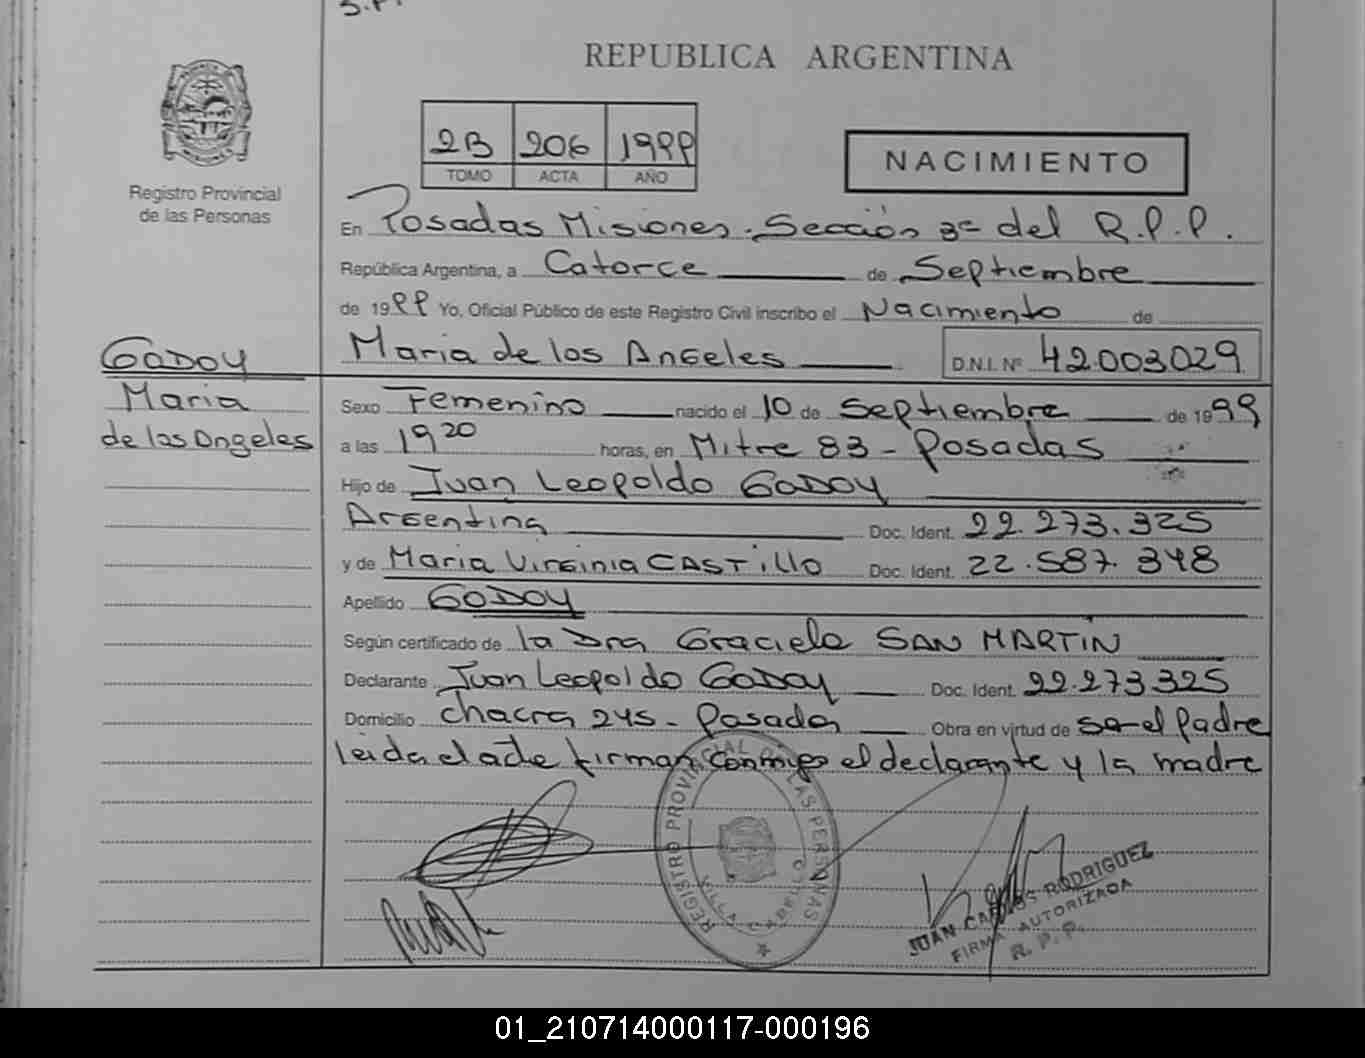 S.P.
REPUBLICA ARGENTINA
2B 206 1999
TOMO ACTA AÑO
NACIMIENTO
Registro Provincial
de las Personas
En Posadas Misiones. Sección 3ª del R.P.P.
República Argentina, a Catorce de Septiembre
de 1999 Yo, Oficial Público de este Registro Civil inscribo el Nacimiento de
Maria de los Angeles D.N.I. Nº 42.003.029
GODOY
Maria
de los Angeles
Sexo Femenino nacido el 10 de Septiembre de 1999
a las 19 20 horas, en Mitre 83 - Posadas
Hijo de Juan Leopoldo GODOY
Argentina Doc. Ident. 22.273.325
y de Maria Virginia CASTillo Doc. Ident. 22.587.348
Apellido GODOY
Según certificado de la Dra Graciela SAN MARTIN
Declarante Juan Leopoldo GODOY Doc. Ident. 22.273325
Domicilio chacra 245 - Posadas Obra en virtud de ser el Padre
leida el acta firman conmigo el declarante y la madre
REGISTRO PROVINCIAL DE LAS PERSONAS
VILLA CABELLO
JUAN CARLOS RODRIGUEZ
FIRMA AUTORIZADA
R. P. P.
01_210714000117-000196